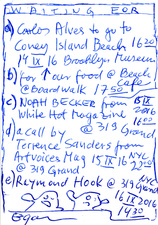 WAITING FOR
a) Carlos Alves to go to
Coney Island Beach 1620
14 IX 16 Brooklyn Museum
b) for ↑ our food @ Beach
Cafe
@ Boardwalk 1750
c) NOAH BECKER from 15 IX
2016
White Hot Magazine 1600
@ 319 Grand
d) a call by
Terrence Sanders from
Artvoices Mag 15 IX 16 NYC
@ 319 Grand
e) Reymond Hook @ 319 Grand
NYC
16 IX 2016
1430